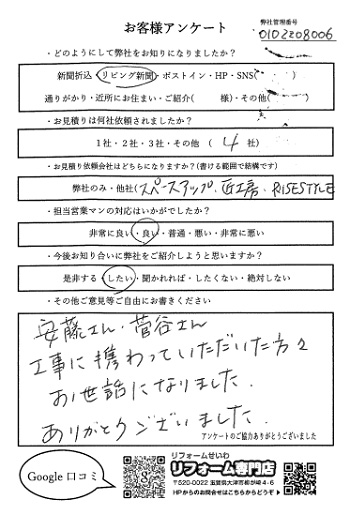 お客様アンケート
弊社管理番号
0102208006
・どのようにして弊社をお知りになりましたか？
新聞折込・リビング新聞・ポストイン・HP・SNS(　　　)
通りがかり・近所にお住まい・ご紹介(　　　様)・その他(　　　)
・お見積りは何社依頼されましたか？
1社・2社・3社・その他 ( 4 社)
・お見積り依頼会社はどちらになりますか？(書ける範囲で結構です)
弊社のみ・他社(スペースアップ、匠工房、RISESTYLE
・担当営業マンの対応はいかがでしたか？
非常に良い・良い・普通・悪い・非常に悪い
・今後お知り合いに弊社をご紹介しようと思いますか？
是非する・したい・聞かれれば・したくない・絶対しない
・その他ご意見等ご自由にお書きください
安藤さん・菅谷さん
工事に携わっていただいた方々
お世話になりました.
ありがとうございました.
アンケートのご協力ありがとうございました
Google 口コミ
リフォームせいわ
リフォーム専門店
〒520-0022 滋賀県大津市柳が崎4-6
HPからのお問合せはこちらからどうぞ